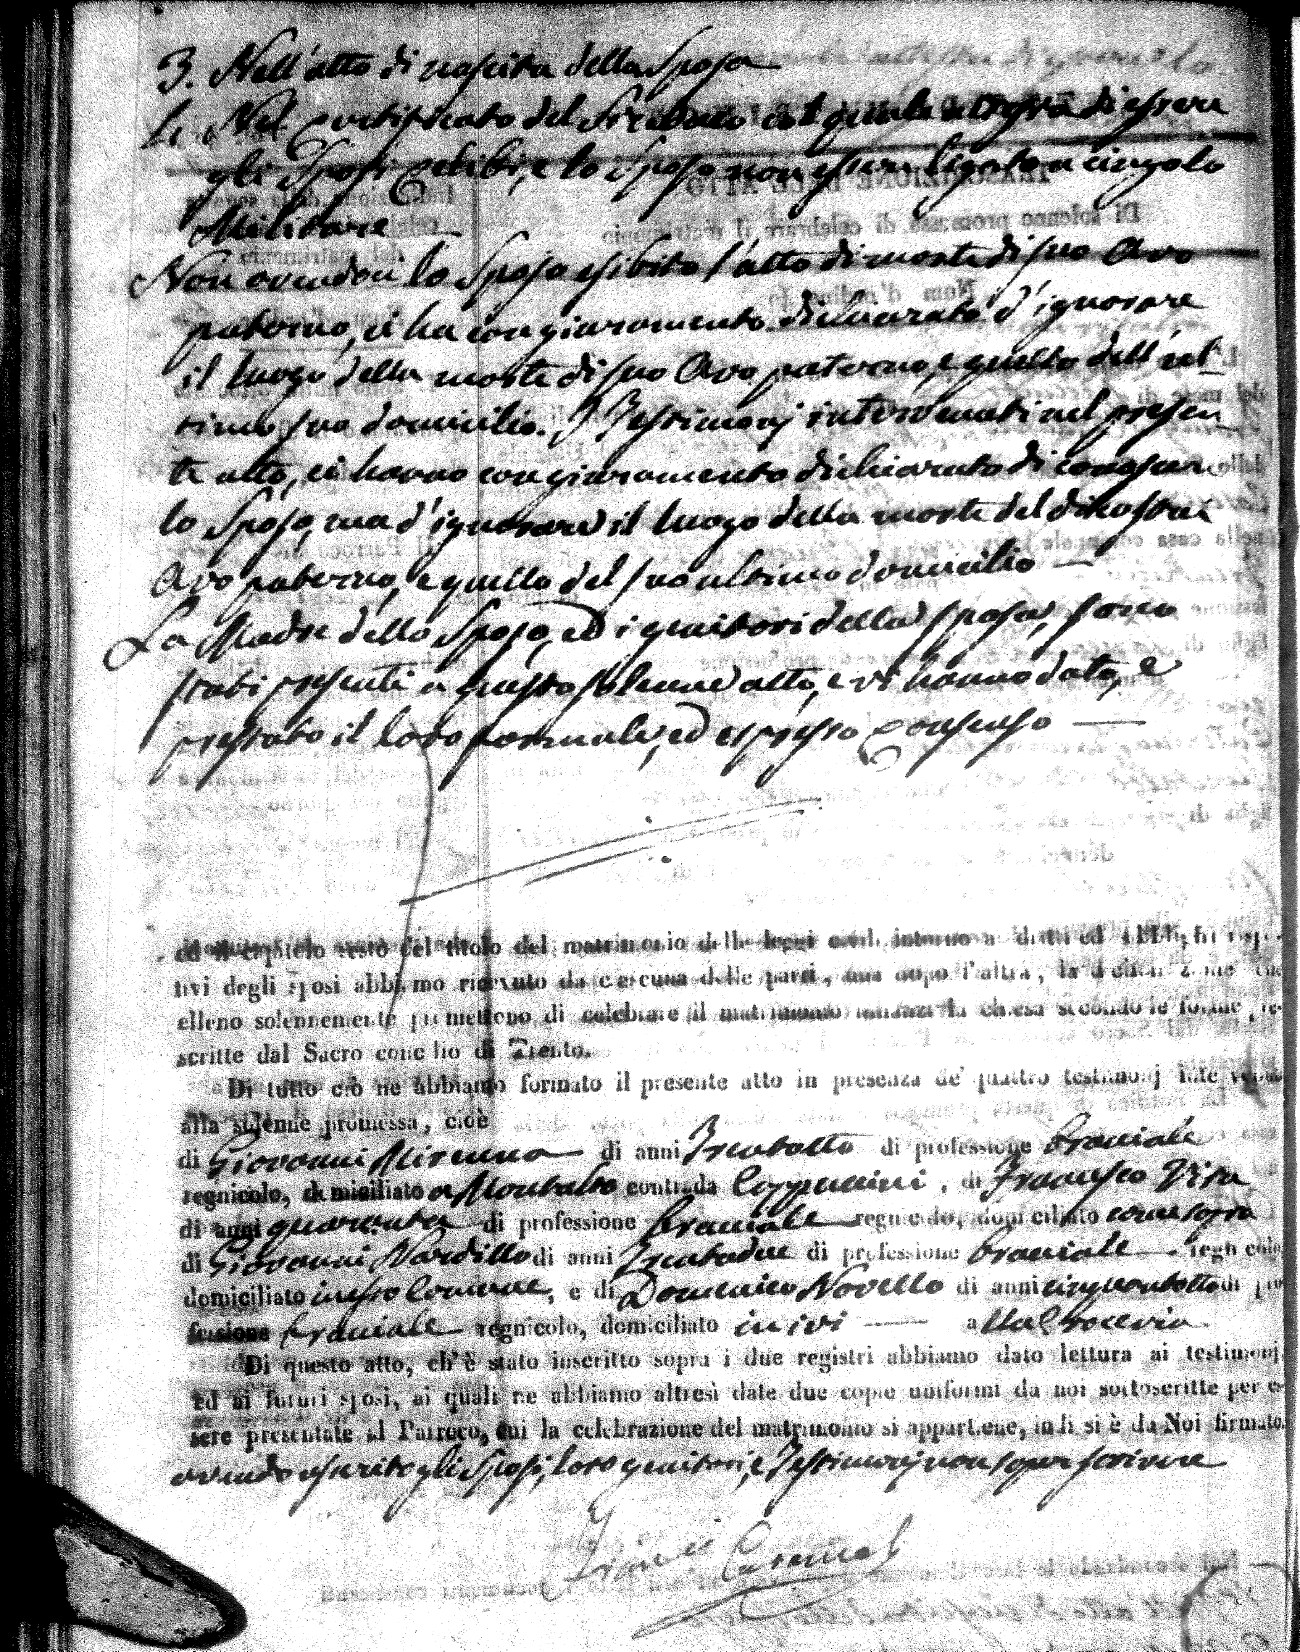 3. Nell'atto di nascita della Sposa
4. Nel certificato del Sindaco col quale attesta di essere
gli Sposi celibi, e lo Sposo non essere ligato a cingolo
Militare
Non avendoci lo Sposo esibito l'atto di morte di suo Avo
paterno, ci ha con giuramento dichiarato d'ignorare
il luogo della morte di suo Avo paterno, e quello dell'ul-
timo suo domicilio. I Testimonj intervenuti nel presen
te atto, ci hanno con giuramento dichiarato di conoscere
lo Sposo, ma d'ignorare il luogo della morte del di costui
Avo paterno, e quello del suo ultimo domicilio
La Madre dello Sposo, ed i genitori della sposa, sono
stati presenti a questo solenne atto, e vi hanno dato, e
prestato il loro formale, ed espresso consenso
ed il capitolo sesto del titolo del matrimonio delle leggi civili intorno a' dritti ed obblighi rispet-
tivi degli sposi abbiamo ricevuto da ciascuna delle parti, una dopo l'altra, la dichiarazione che
elleno solennemente promettono di celebrare il matrimonio innanzi la chiesa secondo le forme pre-
scritte dal Sacro concilio di Trento.
Di tutto ciò ne abbiamo formato il presente atto in presenza de' quattro testimonj intervenuti
alla solenne promessa, cioè
di Giovanni Mirenna di anni Trentotto di professione Braciale
regnicolo, domiciliato a Montalto contrada Cappuccini, di Francesco Vira
di anni quaranta di professione Braciale regnicolo, domiciliato come sopra
di Giovanni Nardillo di anni Trentadue di professione Braciale regnicolo
domiciliato in esso Comune, e di Domenico Novello di anni cinquantotto di pro
fessione Braciale regnicolo, domiciliato in ivi a
Di questo atto, ch'è stato inscritto sopra i due registri abbiamo dato lettura ai testimonj
ed ai futuri sposi, ai quali ne abbiamo altresì date due copie uniformi da noi sottoscritte per es-
sere presentate al Parroco, cui la celebrazione del matrimonio si appartiene, indi si è da Noi firmato,
avendo asserito gli Sposi, loro genitori, e Testimonj non saper scrivere